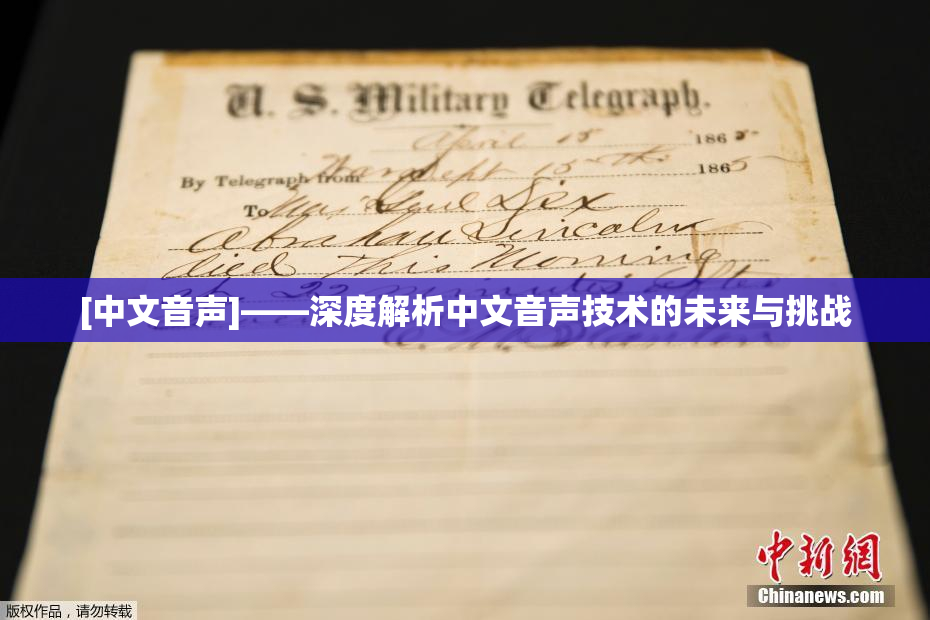 U. S. Military Telegraph.
April 15 1865
By Telegraph from War Dept 15th 1865
To Maj Genl Dix
Abraham Lincoln
died this Morning
at 22 minutes after
[中文音声]——深度解析中文音声技术的未来与挑战
中新网
Chinanews.com
版权作品,请勿转载